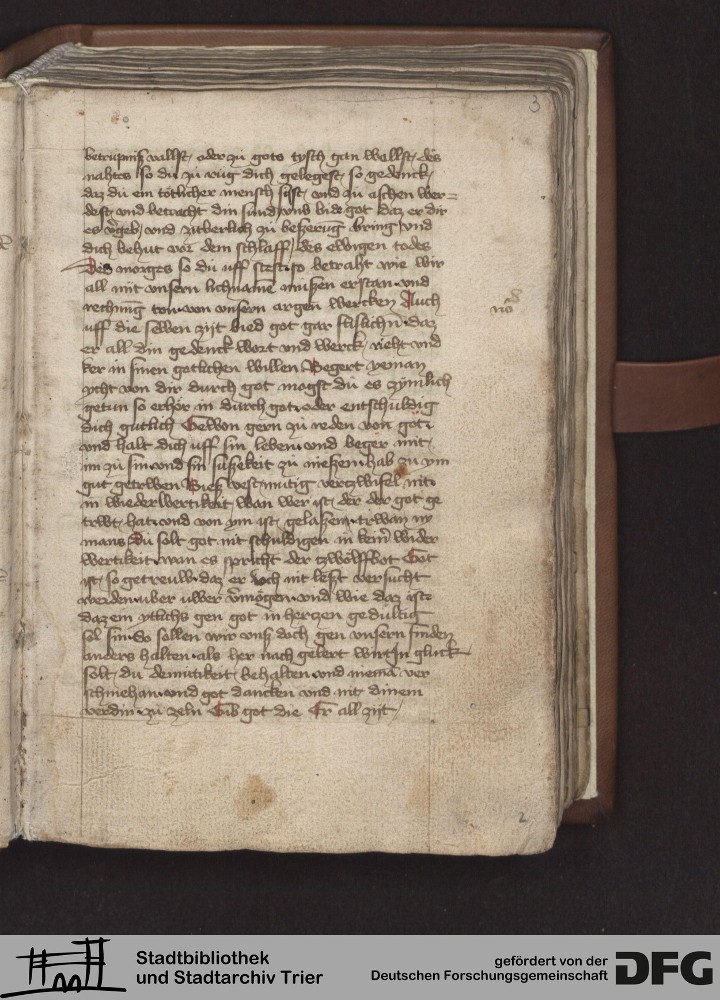 3
betrupniß vallst, oder zu gots tysch gan wellst, des
nahtes so du zu rug dich gelegest, so gedenck,
daz du ein tötlicher mensch sist, und zu aschen wer=
dest, und betracht din sünd, und bide got daz er dir
es vgeb, und ziberlich zu beßerung bring, und
dich behut vor dem schlaff, des ewigen todes
Des morges so du uff stest, so betraht wie wir
all mit unsern lichname müßen erstan, und
rechnung ton, von unsern argen wercken Auch
uff die selben zijt bied got gar flislichn, daz
er all din gedenck wort und werck, rieht und
ker in sinen gotlichen willen Begert yeman
ycht von dir durch got mogst du es zymlich
getun so erhör in durch got, oder entschuldig
dich gütlich Gewon gern zu reden von got,
und halt dich uff sin leben, und beger mit,
im zu sin, und sin süßekeit zu nießen, hab zu ym
gut getrwen Bies vest, mütig verzwifel nit,
in wiederwertikeit, wan wer ist, der der got ge
trwt, hat, und von ym ist, gelaßen, trwan ny
mans, Du solt got nit schuldigen in kein wider
wertikeit, wan es spricht der tzwölffbot Got
ist, so getreuw, daz er üch nit leßt versucht
werden, uber uwer vmögen, und wie daz ist,
daz ein ytlichs gen got in hertzen gedültig
sol sin, So sollen wir unß doch gen unsern sünden
anders halten, als her nach gelert wirt, In gluck
solt, du demütikeit, behalten, und niemā ver
schmehan, und got dancken und nit dinem
verdin, zu zeln Gib got die Er all zijt,
2
Stadtbibliothek
und Stadtarchiv Trier
gefördert von der
Deutschen Forschungsgemeinschaft
DFG